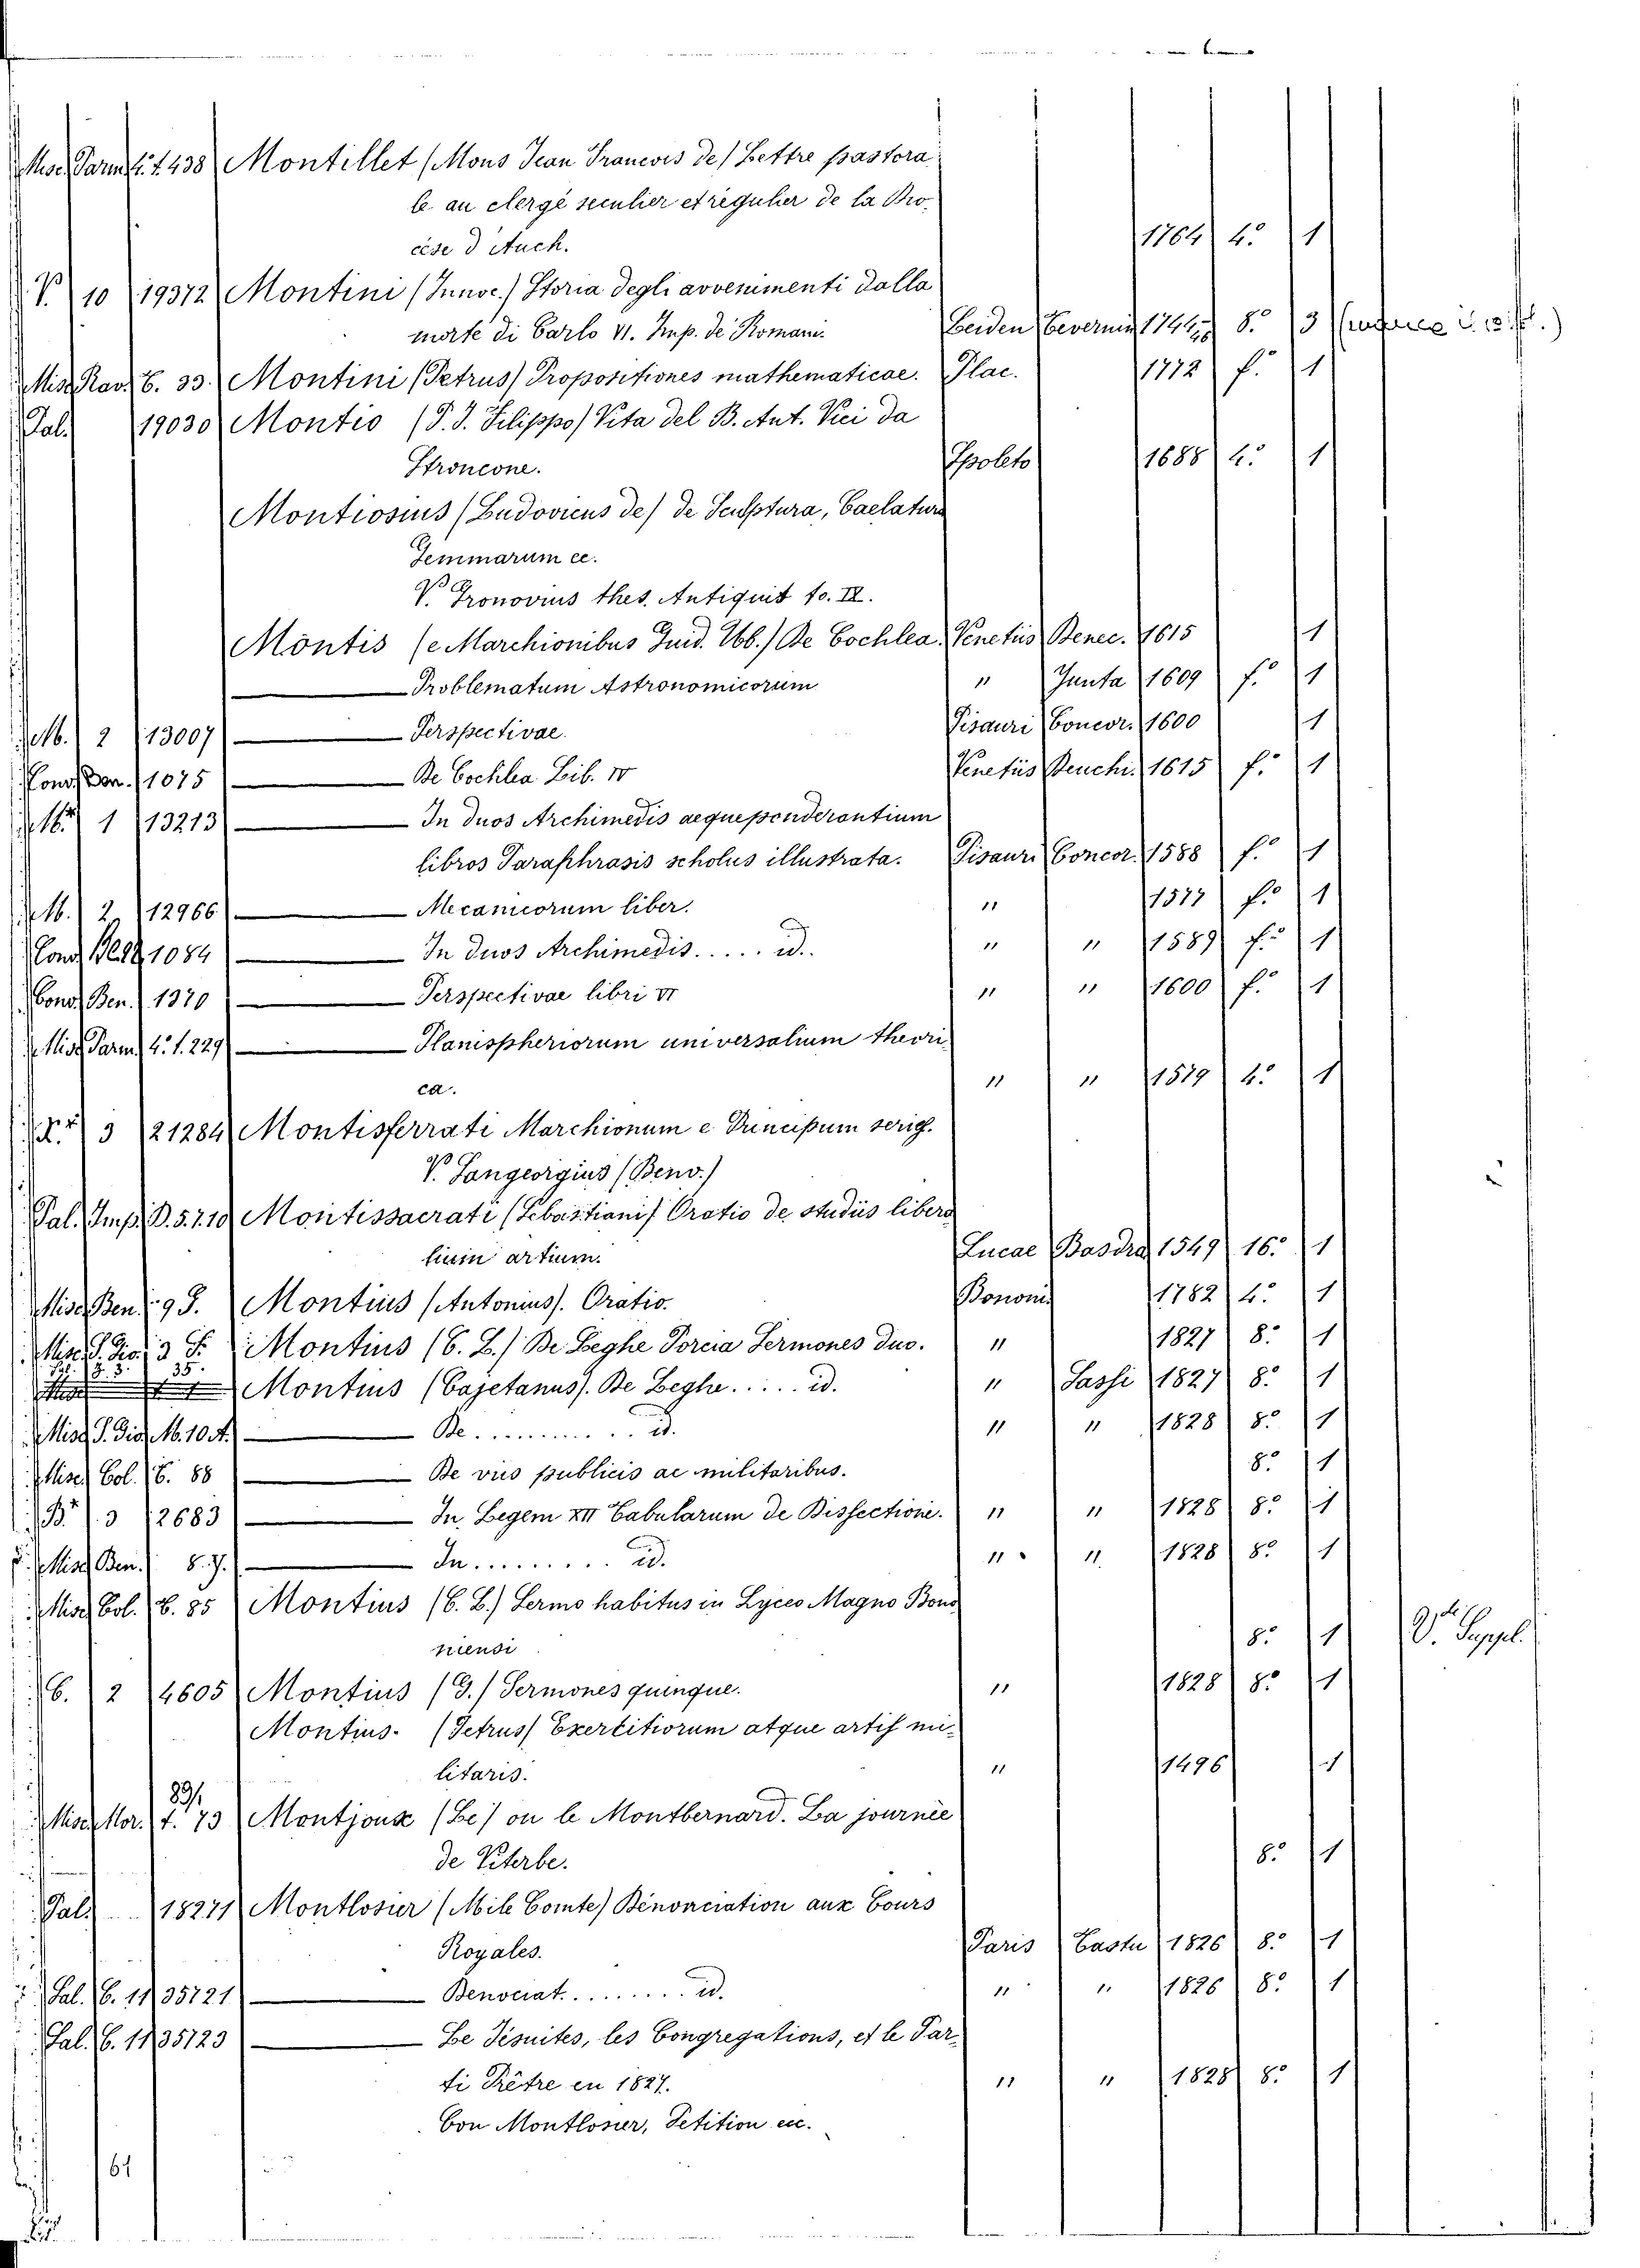 Misc. Parm. 4. 1. 438 Montillet (Mons Jean Francois de) Lettre pastora
le au clergé seculier et regulier de la Dio
cése d'Auch. 1764 4.º 1
V. 10 19372 Montini (Innoc.) Storia degli avvenimenti dalla
morte di Carlo VI. Imp. de Romani. Leiden 8.º 3
Misc. Rav. C. 33. Montini (Petrus) Propositiones mathematicae. Plac. 1772 f.º 1
Pal. 19030 Montio (P. J. Filippo) Vita del B. Ant. Vici da
Stroncone. Spoleto 1688 4.º 1
Montiosius (Ludovicus de) de Sculptura, Caelatura
Gemmarum ec.
V. Gronovius thes. Antiquit to. IX.
Montis (e Marchionibus Guid. Ubb.) De Cochlea. Venetiis Denec. 1615 1
Problematum Astronomicorum " Junta 1609 f.º 1
M. 2 13007 Perspectivae. Pisauri Concor. 1600 1
Cons. Ben. 1075 De Cochlea Lib. IV Venetiis Deuchi. 1615 f.º 1
M.r 1 13213 In duos Archimedis aequeponderantium
libros Paraphrasis scholiis illustrata. Pisauri Concor. 1588 f.º 1
M. 2 12966 Mecanicorum liber. " 1577 f.º 1
Cons. 1084 In duos Archimedis..... id. " " 1589 f.º 1
Cons. Ben. 1370 Perspectivae libri VI " " 1600 f.º 1
Misc. Parm. 4. 1. 229 Planispheriorum universalium theori
ca. " " 1579 4.º 1
3 21284 Montisferrati Marchionum e Principum serig.
V. Sangeorgius (Benv.)
Pal. Imp. D. 5. 7. 10 Montissacrati (Sebastiani) Oratio de studiis libera
lium artium. Lucae Basdra 1549 16.º 1
Misc. Ben. 9 J. Montius (Antonius). Oratio. Bononi 1782 4.º 1
Misc. S. Gio. 3 F. Montius (C. L.) De Leghe Porcia Sermones duo. " 1827 8.º 1
35. Montius (Cajetanus). De Leghe..... id. " Sassi 1827 8.º 1
Misc. S. Gio. M. 10 A. De........... id. " " 1828 8.º 1
Misc. Col. C. 88 De viis publicis ac militaribus. 8.º 1
B.r 3 2683 In Legem XII Tabularum de Dissectione. " " 1828 8.º 1
Misc. Ben. 8. 7. In......... id. " " 1828 8.º 1
Misc. Col. C. 85 Montius (C. L.) Sermo habitus in Lyceo Magno Bono
niensi 8.º 1 V. Suppl.
C. 2 4605 Montius (G.) Sermones quinque. " 1828 8.º 1
Montius. (Petrus) Exercitiorum atque artis mi-
litaris. " 1496 1
89/
Misc. Mor. t. 73 Montjoux (Le) ou le Montbernard. La journée
de Viterbe. 8.º 1
Pal. 18271 Montlosier (Mile Comte) Dénonciation aux Cours
Royales. Paris Castu 1826 8.º 1
Pal. C. 11 35721 Denociat......... id. " " 1826 8.º 1
Pal. C. 11 35723 Le Jésuites, les Congregations, et le Par
ti Prêtre en 1827. " " 1828 8.º 1
Con Montlosier, Petition ec.
61